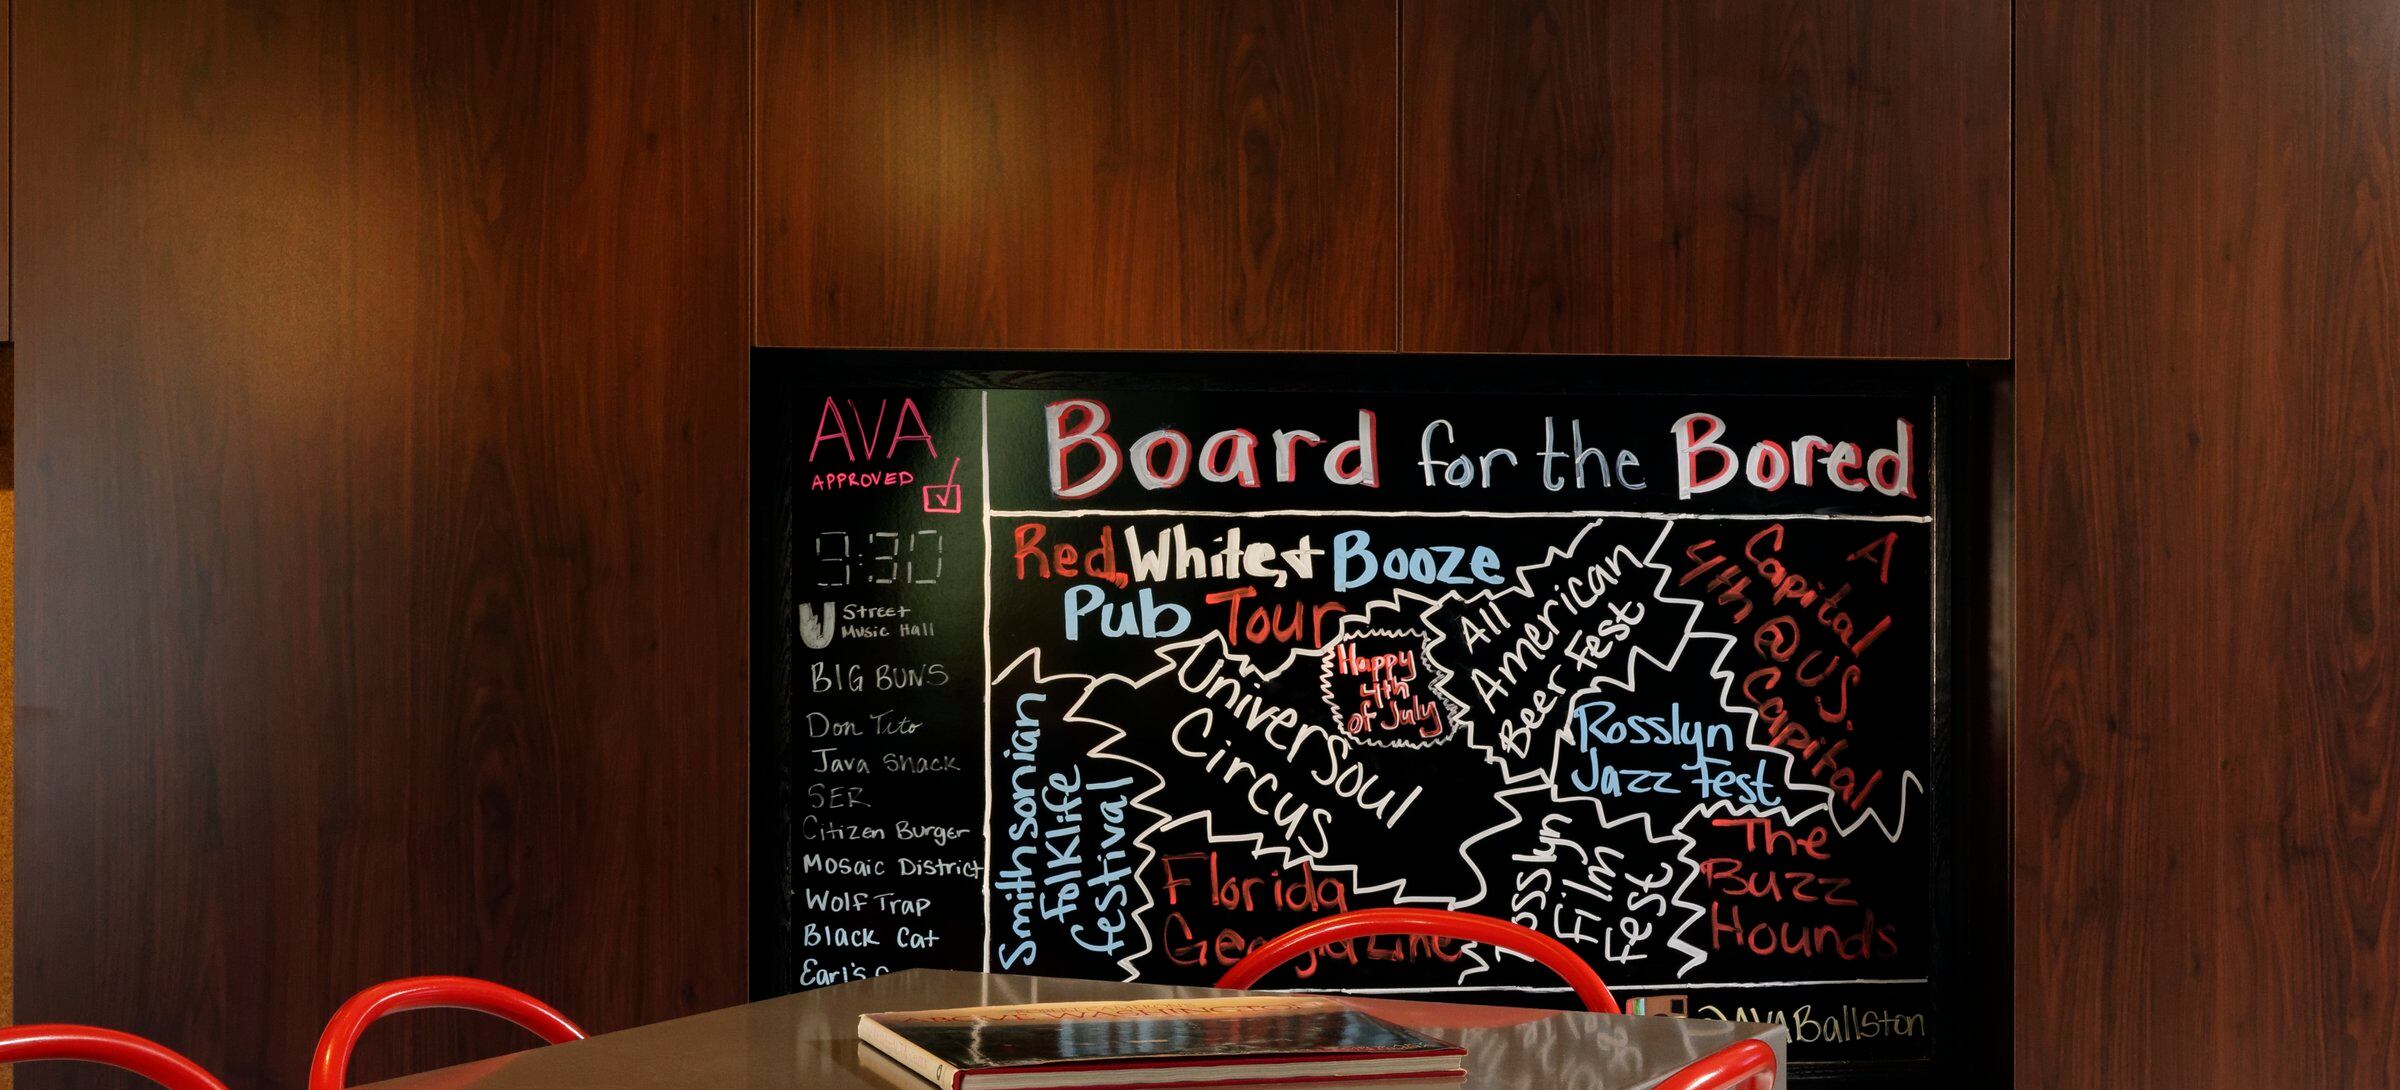 AVA
APPROVED
9:30
U Street
Music Hall
BIG BUNS
Don Tito
Java Shack
SER
Citizen Burger
Mosaic District
Wolf Trap
Black Cat
Earl's
Board for the Bored
Red, White, + Booze
Pub Tour
Smithsonian
Folklife
festival
Universoul
Circus
Happy
4th
of July
All
American
Beer Fest
A
Capital
4th @ U.S.
Capital
Rosslyn
Jazz Fest
Florida
Georgia Line
Rosslyn
Film
Fest
The
Buzz
Hounds
@AVABallston
ABOVE WASHINGTON